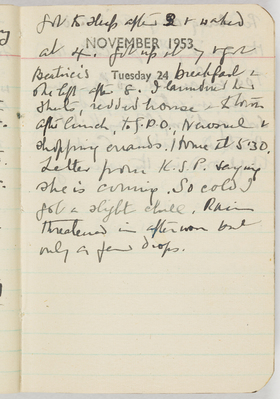 got to sleep after 2 & waked
at 4. Got up at 7 & got
NOVEMBER 1953
Beatrice's breakfast &
Tuesday 24
she left after 8. I laundered her
sheets, redded house &
after lunch, to G.P.O., Newsreel &
shopping errands. Home at 5.30.
Letter from K.S.P. saying
she is coming. So cold I
got a slight chill. Rain
threatened in afternoon but
only a few drops.